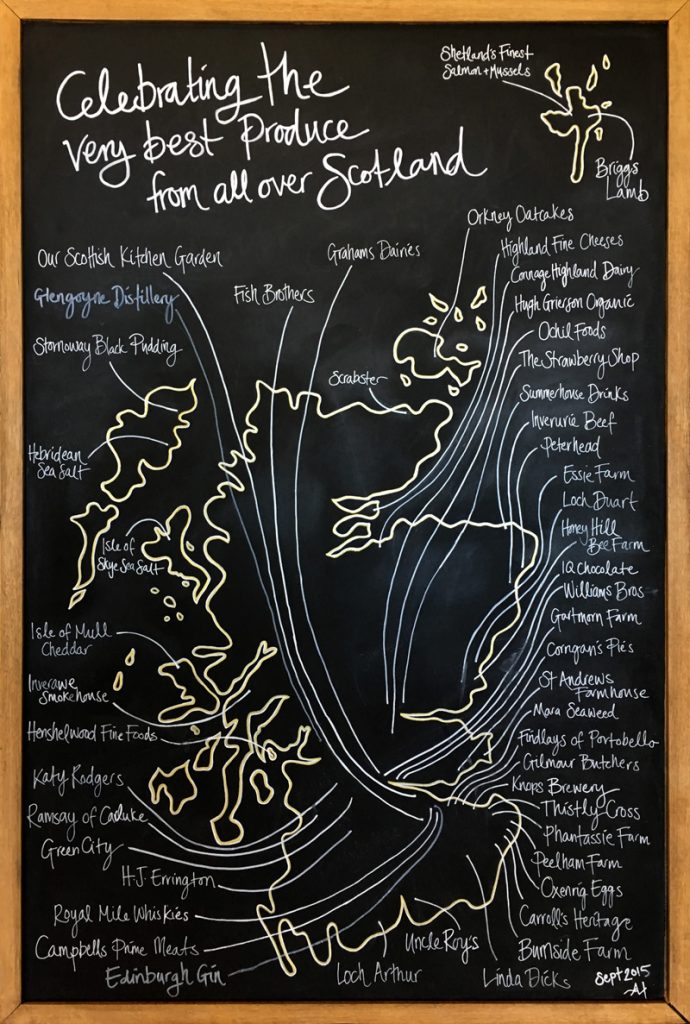 Celebrating the
very best Produce
from all over Scotland
Shetland's Finest
Salmon + Mussels
Briggs
Lamb
Our Scottish Kitchen Garden
Glengoyne Distillery
Stornoway Black Pudding
Hebridean
Sea Salt
Isle of
Skye Sea Salt
Isle of Mull
Cheddar
Inverawe
Smokehouse
Henshelwood Fine Foods
Katy Rodgers
Ramsay of Carluke
Green City
H.J. Errington
Royal Mile Whiskies
Campbells Prime Meats
Edinburgh Gin
Fish Brothers
Grahams Dairies
Scrabster
Orkney Oatcakes
Highland Fine Cheeses
Connage Highland Dairy
Hugh Grierson Organic
Ochil Foods
The Strawberry Shop
Summerhouse Drinks
Inverurie Beef
Peterhead
Essie Farm
Loch Duart
Honey Hill
Bee Farm
IQ Chocolate
Williams Bros
Gartmorn Farm
Corrigan's Pies
St Andrews
Farmhouse
Mara Seaweed
Findlays of Portobello
Gilmour Butchers
Knops Brewery
Thistly Cross
Phantassie Farm
Peelham Farm
Oxenrig Eggs
Carroll's Heritage
Burnside Farm
Linda Dicks
Uncle Roy's
Loch Arthur
Sept 2015